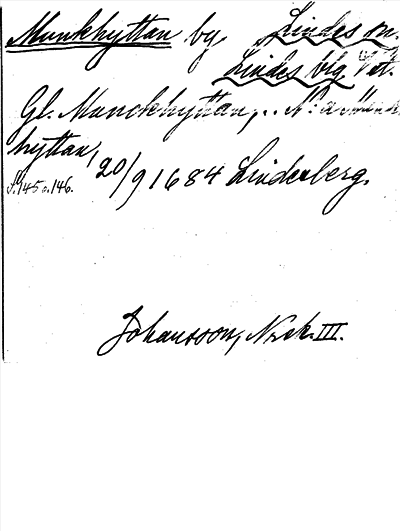 Munkhyttan by Lindes sn.
Lindes blg Vstm.
Gl. Munckhyttan, .. N:a Munck
hyttan, 20/9 1684 Lindesberg.
S. 145 o. 146.
Johansson, Norsk. III.